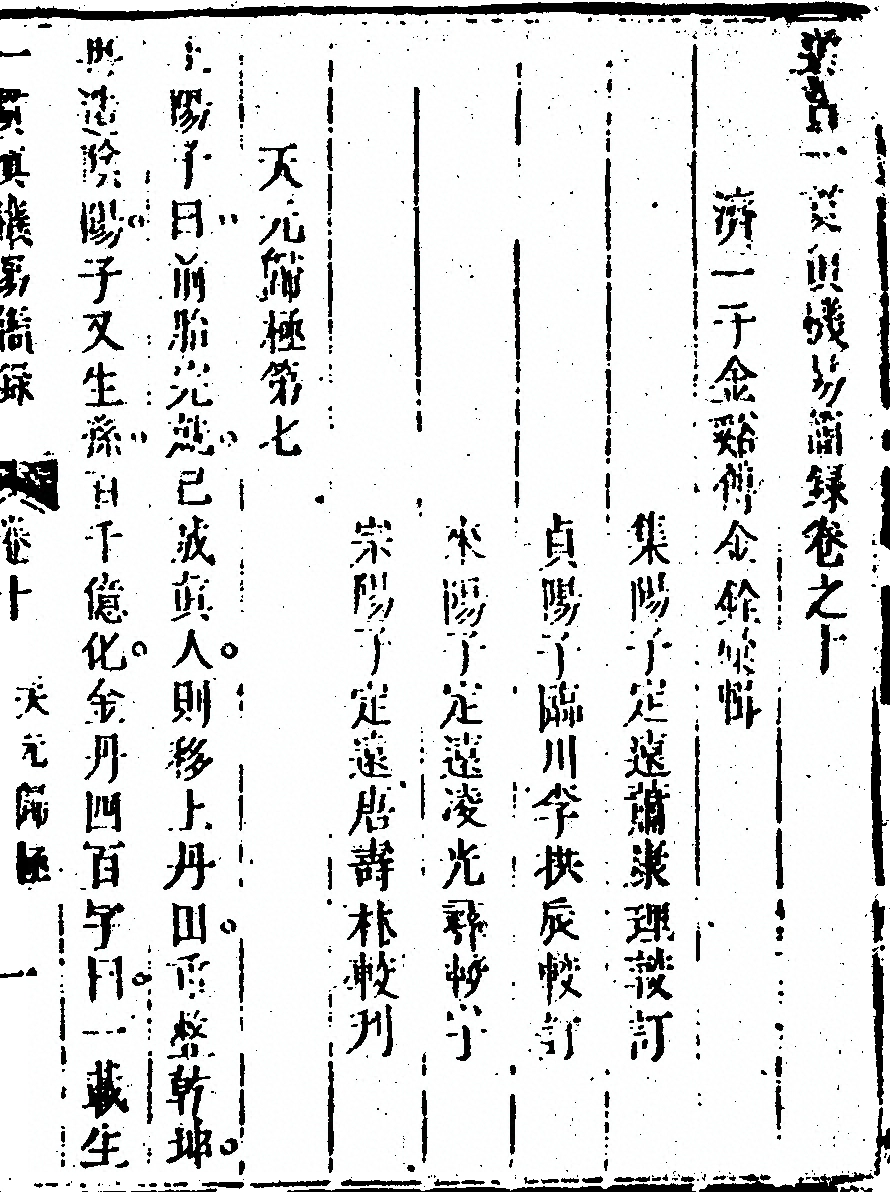 一貫真機易簡録卷之十
濟一子金谿傅金銓彙輯
集陽子定遠蕭 理 訂
貞陽子臨川李拱辰較訂
來陽子定遠凌光 較字
宗陽子定遠唐壽林較刊
天元歸極第七
上陽子曰前胎完就已成真人則移上丹田重整乾坤
再造陰陽子又生孫百千億化金丹四百字曰一載生
一貫真機易簡録 卷十 天元歸極 一